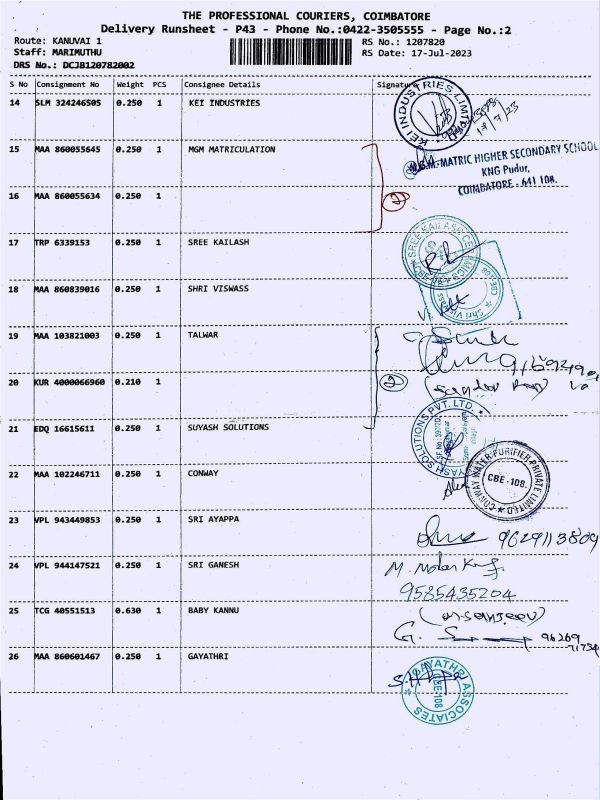 THE PROFESSIONAL COURIERS, COIMBATORE
Delivery Runsheet - P43 - Phone No.:0422-3505555 - Page No.:2
Route: KANUVAI 1
Staff: MARIMUTHU
DRS No.: DCJB120782002
RS No.: 1207820
RS Date: 17-Jul-2023
S No Consignment No Weight PCS Consignee Details Signature
14 SLM 324246505 0.250 1 KEI INDUSTRIES
KEI INDUSTRIES LIMITED
17/7/23
15 MAA 860055645 0.250 1 MGM MATRICULATION
M.G.M. MATRIC HIGHER SECONDARY SCHOOL
KNG Pudur,
COIMBATORE - 641 108.
16 MAA 860055634 0.250 1
2
17 TRP 6339153 0.250 1 SREE KAILASH
SREE KAILASH
18 MAA 860839016 0.250 1 SHRI VISWASS
Shri Viswass
CBE-108
19 MAA 103821003 0.250 1 TALWAR
20 KUR 4000066960 0.210 1
2
21 EDQ 16615611 0.250 1 SUYASH SOLUTIONS
SUYASH SOLUTIONS PVT. LTD.
22 MAA 102246711 0.250 1 CONWAY
CONWAY WATER PURIFIER PRIVATE LIMITED
CBE-108.
23 VPL 943449853 0.250 1 SRI AYAPPA
9629113809
24 VPL 944147521 0.250 1 SRI GANESH
9585435204
25 TCG 40551513 0.630 1 BABY KANNU
G.
26 MAA 860601467 0.250 1 GAYATHRI
GAYATHRI ASSOCIATES
CBE-108